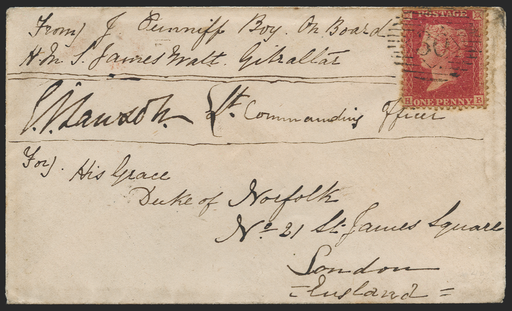 From) J Cunniff Boy. On Board
H. M. S. James Watt. Gibraltar
POSTAGE
ONE PENNY
Lt Commanding Officer
For). His Grace
Duke of Norfolk
No 21 St. James Square
London
= England =